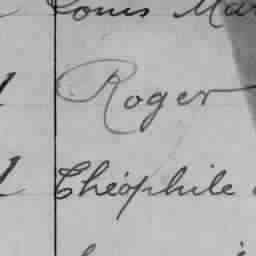 Louis Mar
Roger
Théophile